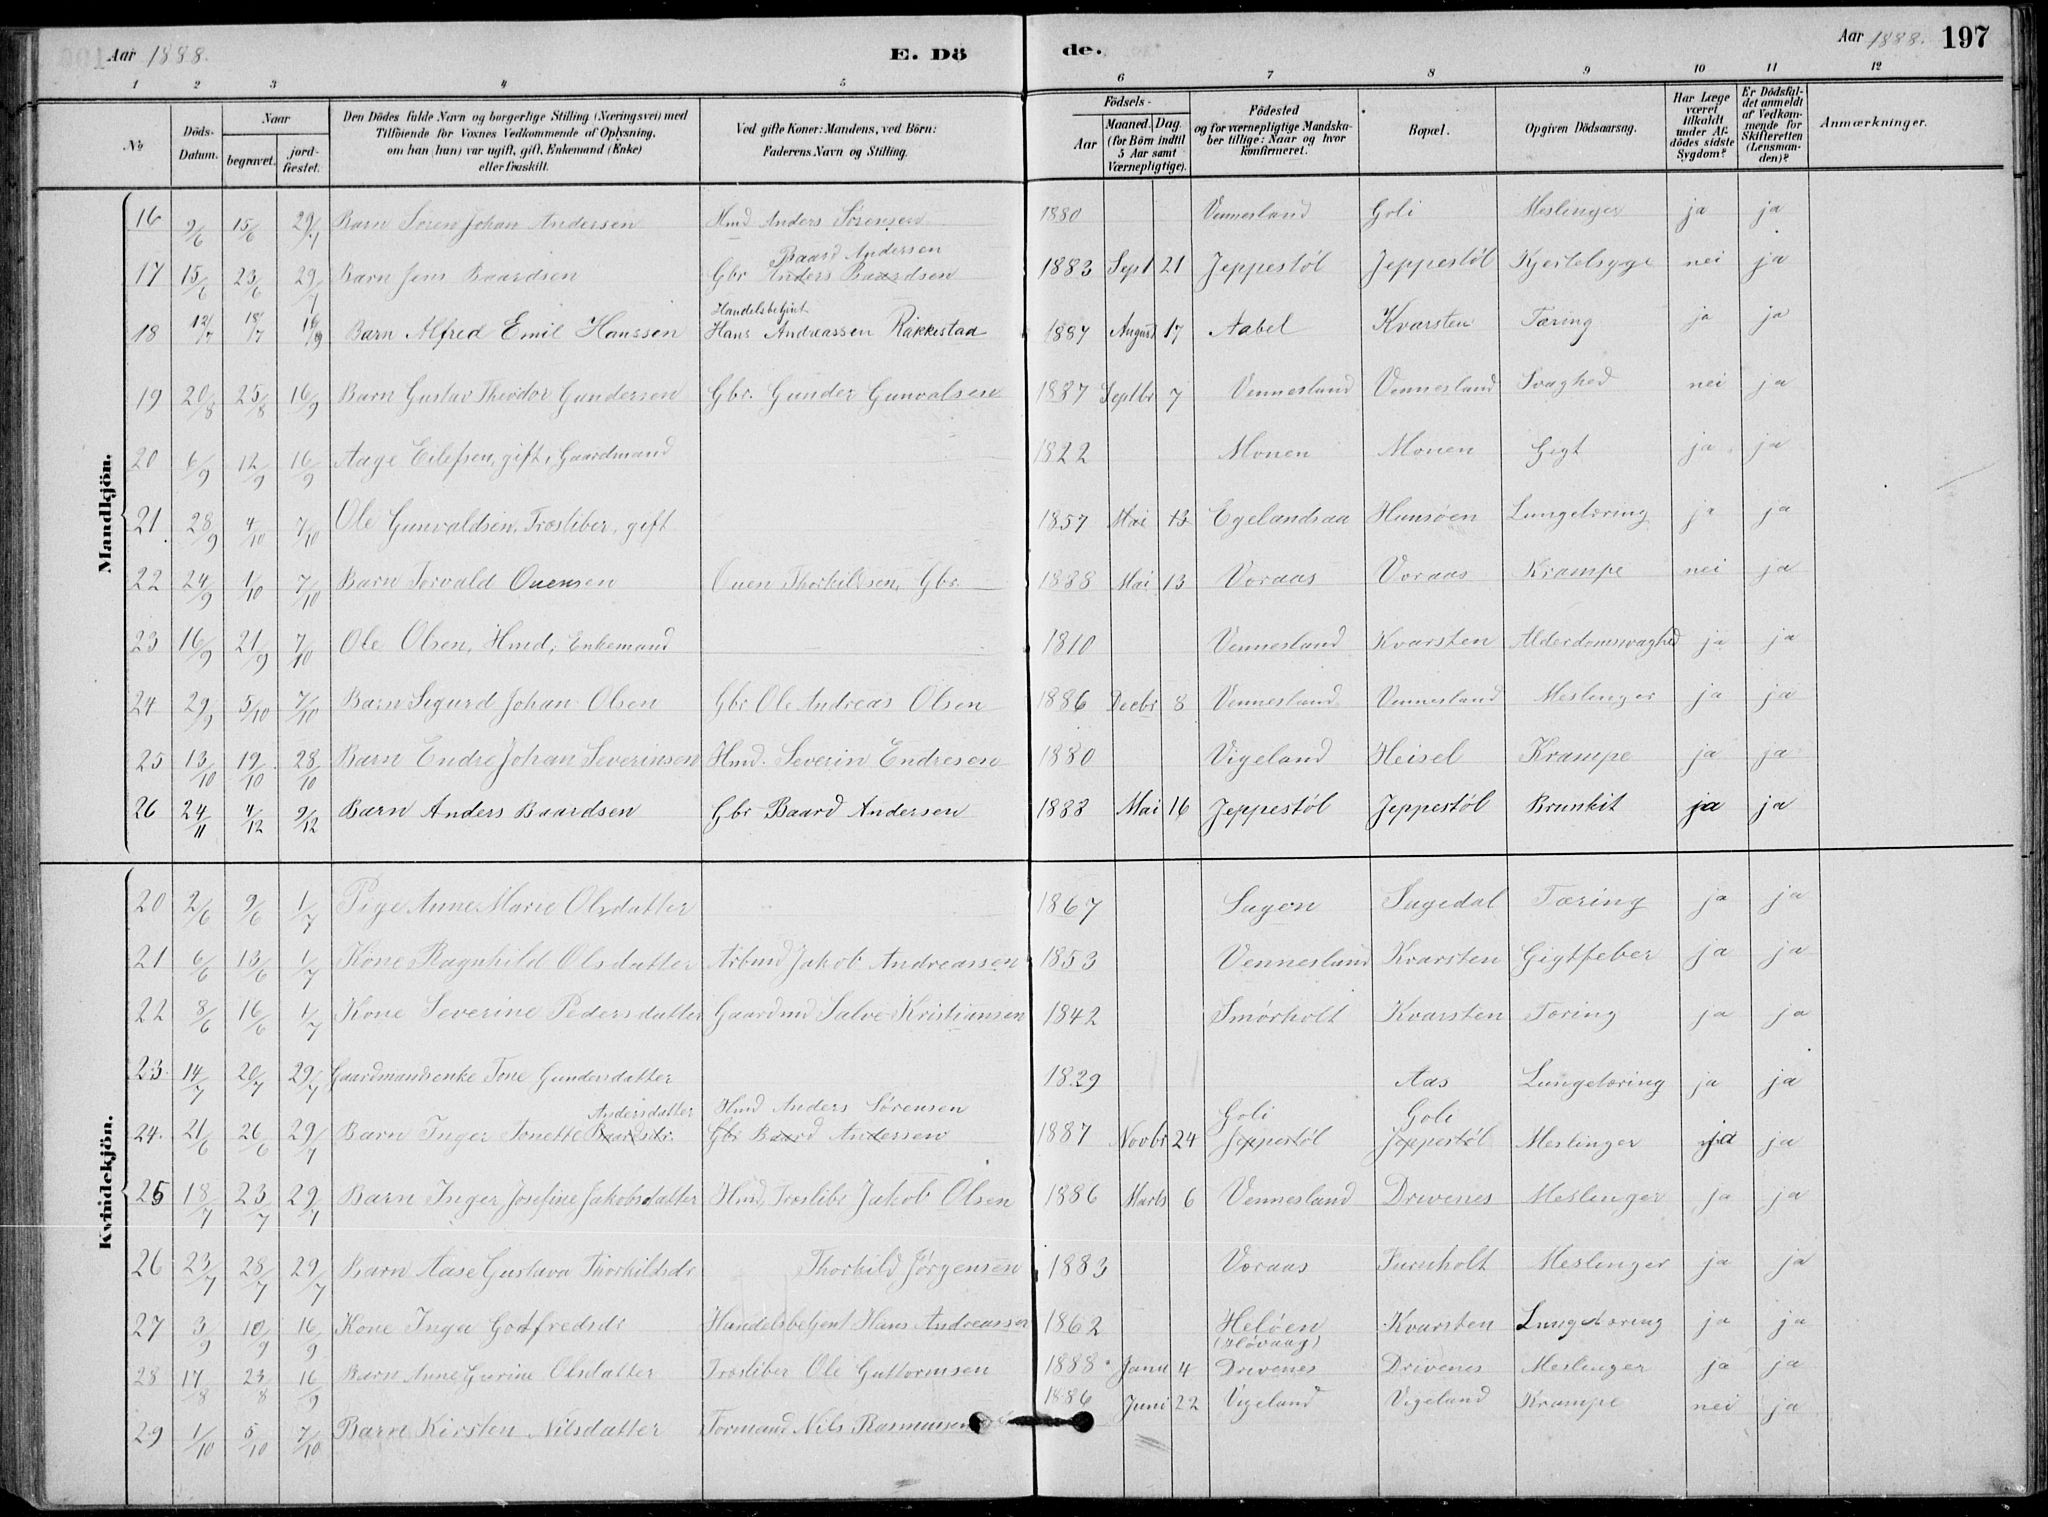 Aar 1888. E. Dö de. Aar 1888. 197
1 2 3 4 5 6 7 8 9 10 11 12
No Döds-Datum. Naar begravet. jordfæstet. Den Dödes fulde Navn og borgerlige Stilling (Næringsvei) med Tilföiende for Voxnes Vedkommende af Oplysning, om han (hun) var ugift, gift, Enkemand (Enke) eller fraskilt. Ved gifte Koner: Mandens, ved Börn: Faderens Navn og Stilling. Födsels- Aar Maaned. Dag. (for Börn indtil 5 Aar samt Værnepligtige). Födested og for værnepligtige Mandskaber tillige: Naar og hvor konfirmeret. Bopæl. Opgiven Dödsaarsag. Har Læge været tilkaldt under Afdödes sidste Sygdom? Er Dödsfaldet anmeldt af Vedkommende for Skifteretten (Lensmanden)? Anmærkninger.
Mandkjön.
16 9/6 15/6 29/7 Barn Søren Johan Andersen Hmd Anders Sørensen 1880 Vennesland Goli Meslinger ja ja
Baard Andersen
17 15/6 23/6 29/7 Barn Jens Baardsen Gbr Anders Baardsen 1883 Sept 21 Jeppestøl Jeppestøl Kjertelsyge nei ja
Handelsbetjent
18 12/7 18/7 16/9 Barn Alfred Emil Hanssen Hans Andreassen Rakkestad 1887 August 17 Aabel Kvarsten Tæring ja ja
19 20/8 25/8 16/9 Barn Gustav Theodor Gundersen Gbr. Gunder Gunvalsen 1887 Septbr 7 Vennesland Vennesland Svaghed nei ja
20 6/9 12/9 16/9 Aage Eilefsen, gift, Gaardmand 1822 Monen Monen Gigt ja ja
21. 28/9 4/10 7/10 Ole Gunvaldsen, Træsliber, gift 1857 Mai 13 Egelandsaa Hunsøen Lungetæring ja ja
22 24/9 1/10 7/10 Barn Torvald Ouensen Ouen Thorkildsen, Gbr. 1888 Mai 13 Voraas Voraas Krampe nei ja
23 16/9 21/9 7/10 Ole Olsen, Hmd, Enkemand 1810 Vennesland Kvarsten Alderdomssvaghed ja ja
24 29/9 5/10 7/10 Barn Sigurd Johan Olsen Gbr Ole Andreas Olsen 1886 Decbr 8 Vennesland Vennesland Meslinger ja ja
25 13/10 19/10 28/10 Barn Endre Johan Severinsen Hmd. Severin Endresen 1880 Vigeland Heisel Krampe ja ja
26 24/11 4/12 9/12 Barn Anders Baardsen Gbr Baard Andersen 1888 Mai 16 Jeppestøl Jeppestøl Brunkit ja ja
Kvindekjön.
20 2/6 9/6 1/7 Pige Anne Marie Olsdatter 1867 Sagen Sagedal Tæring ja ja
21 6/6 13/6 1/7 Kone Ragnhild Olsdatter Arbmd Jakob Andreassen 1853 Vennesland Kvarsten Gigtfeber ja ja
22 8/6 16/6 1/7 Kone Severine Pedersdatter Gaardmd Salve Kristiansen 1842 Smørholt Kvarsten Tæring ja ja
23. 14/7 20/7 29/7 Gaardmandsenke Tone Gundersdatter 1829 Aas Lungetæring ja ja
Andersdatter Hmd Anders Sørensen Goli Goli
24. 21/6 26/6 29/7 Barn Inger Tonette Baardsdr. Gbr Baard Andersen 1887 Novbr 24 Jeppestøl Jeppestøl Meslinger ja ja
25 18/7 23/7 29/7 Barn Inger Josefine Jakobsdatter Hmd, Træslibr Jakob Olsen 1886 Marts 6 Vennesland Drivenes Meslinger ja ja
26 23/7 28/7 29/7 Barn Aase Gustava Thorkildsdr Thorkild Jørgensen 1883 Voraas Furuholt Meslinger ja ja
27 3/9 10/9 16/9 Kone Inga Gotfredsdr Handelsbetjent Hans Andreassen 1862 Heløen (Høvaag) Kvarsten Lungetæring ja ja
28 17/8 23/8 16/9 Barn Anne Gurine Olsdatter Træsliber Ole Guttormsen 1888 Janu 4 Drivenes Drivenes Meslinger ja ja
29 1/10 5/10 7/10 Barn Kirsten Nilsdatter Formand Nils Rasmussen 1886 Juni 22 Vigeland Vigeland Krampe nei ja